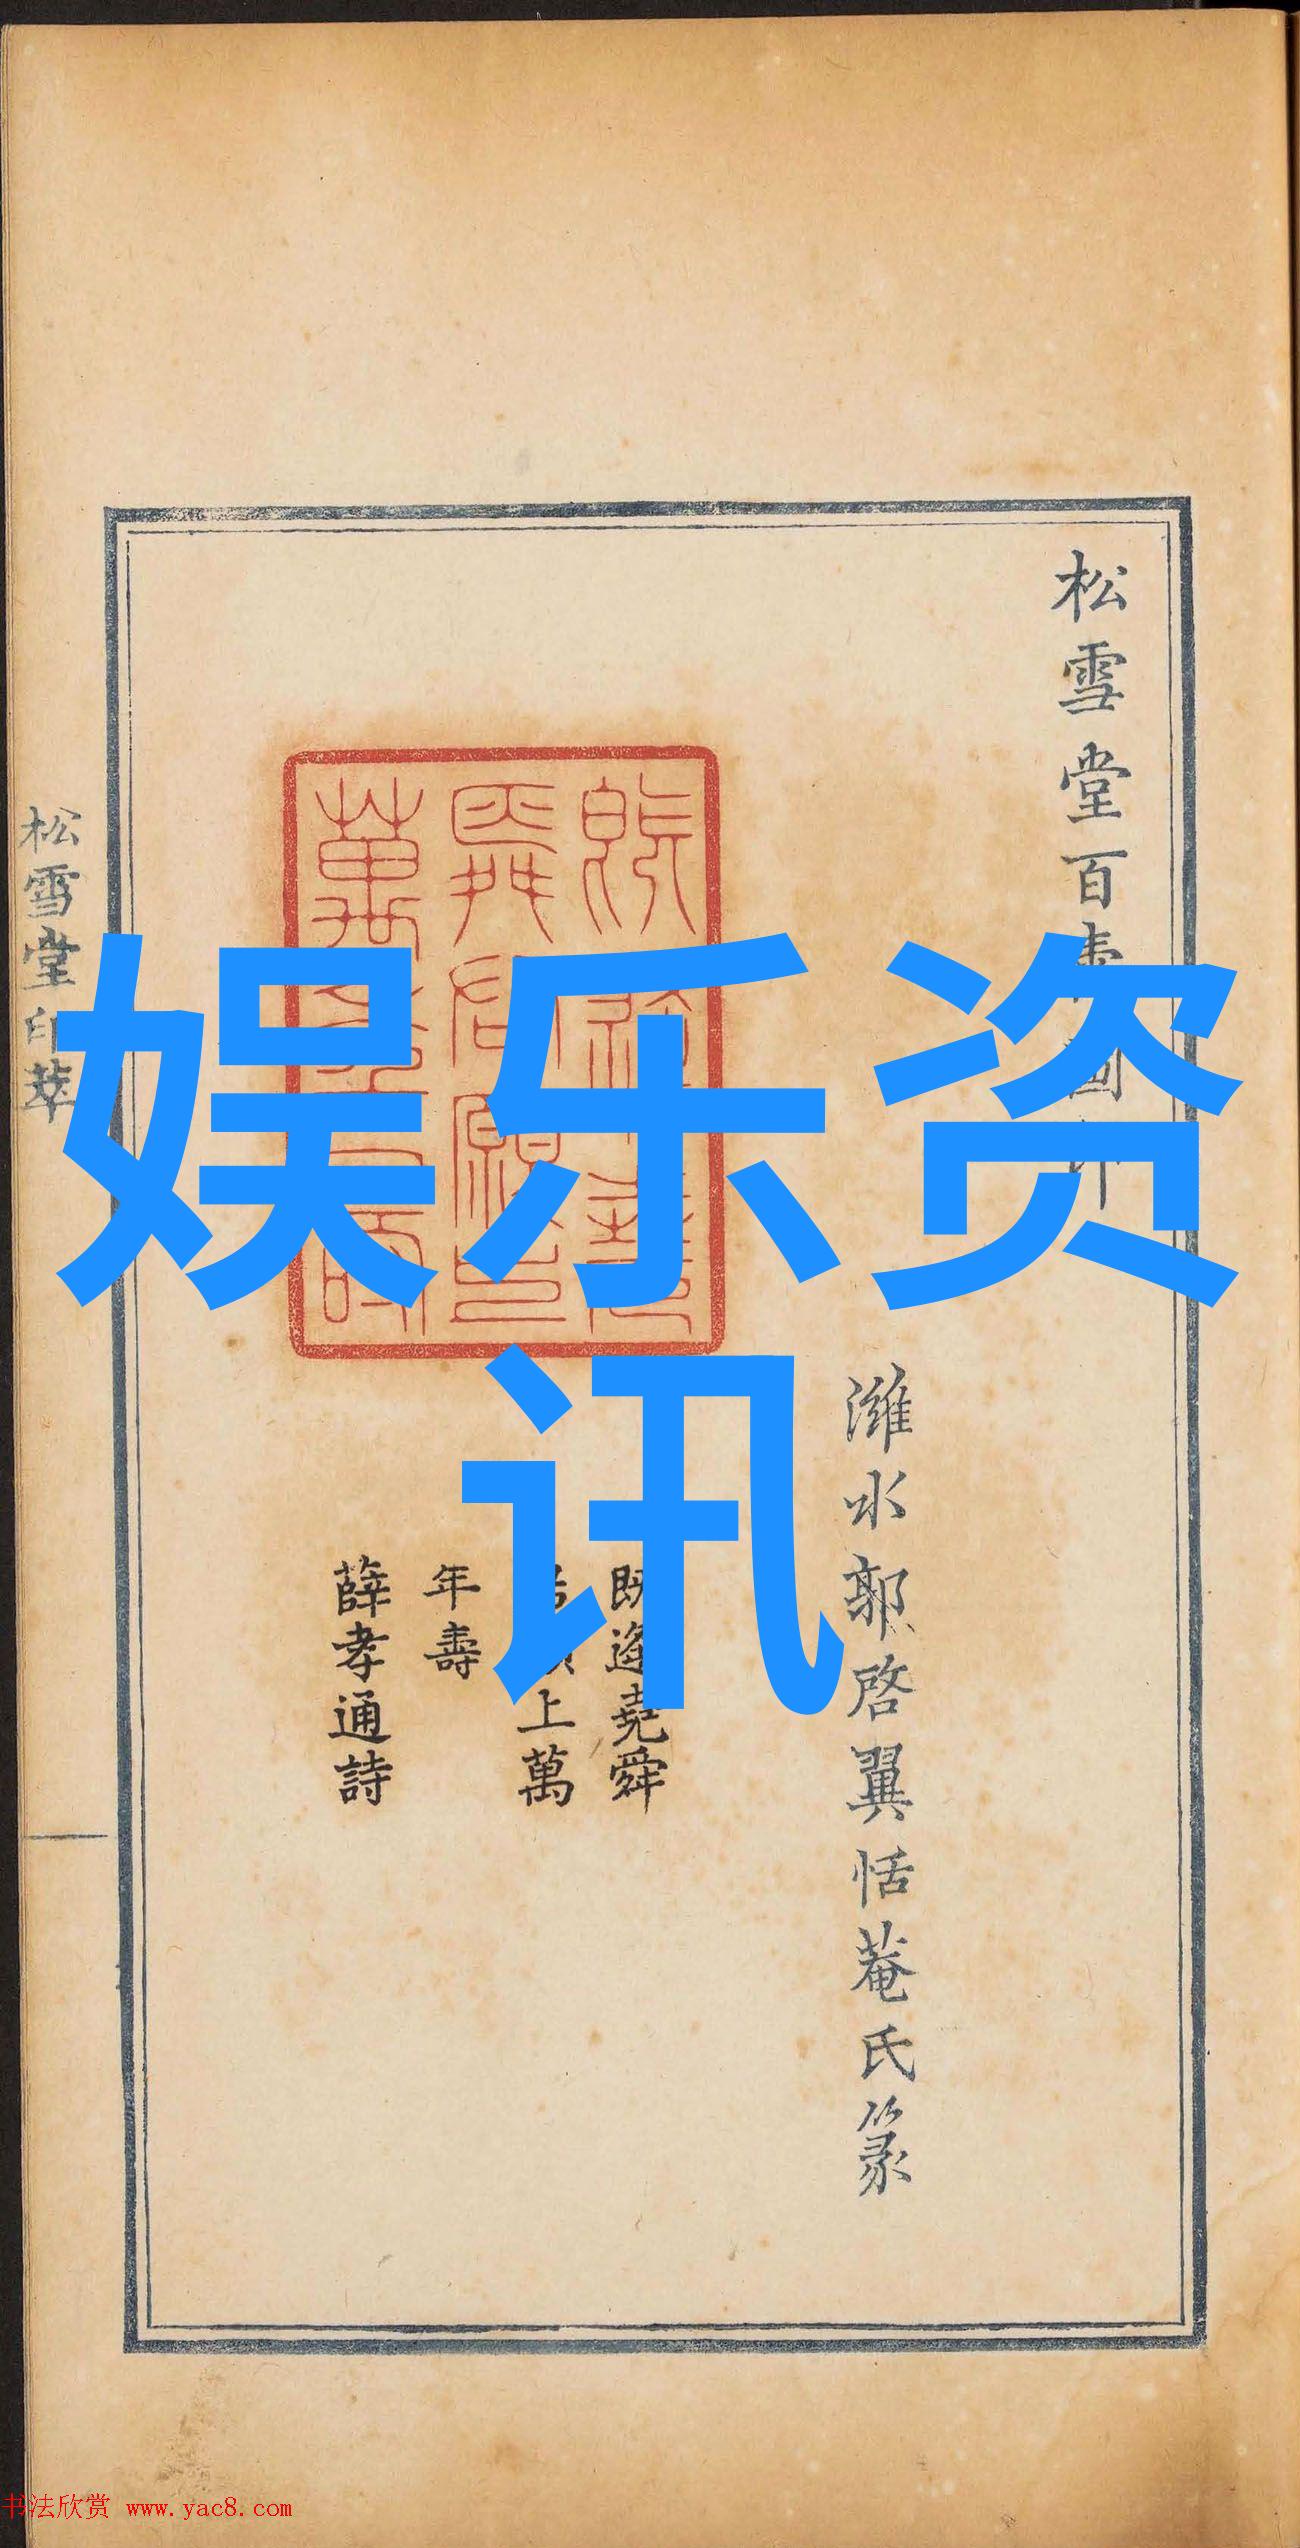 松雪堂百壽圖印
濰水郭啓翼恬菴氏篆
既逢堯舜
上萬
年壽
薛孝通詩
松雪堂印萃
娱乐资
讯
书法欣赏 www.yac8.com